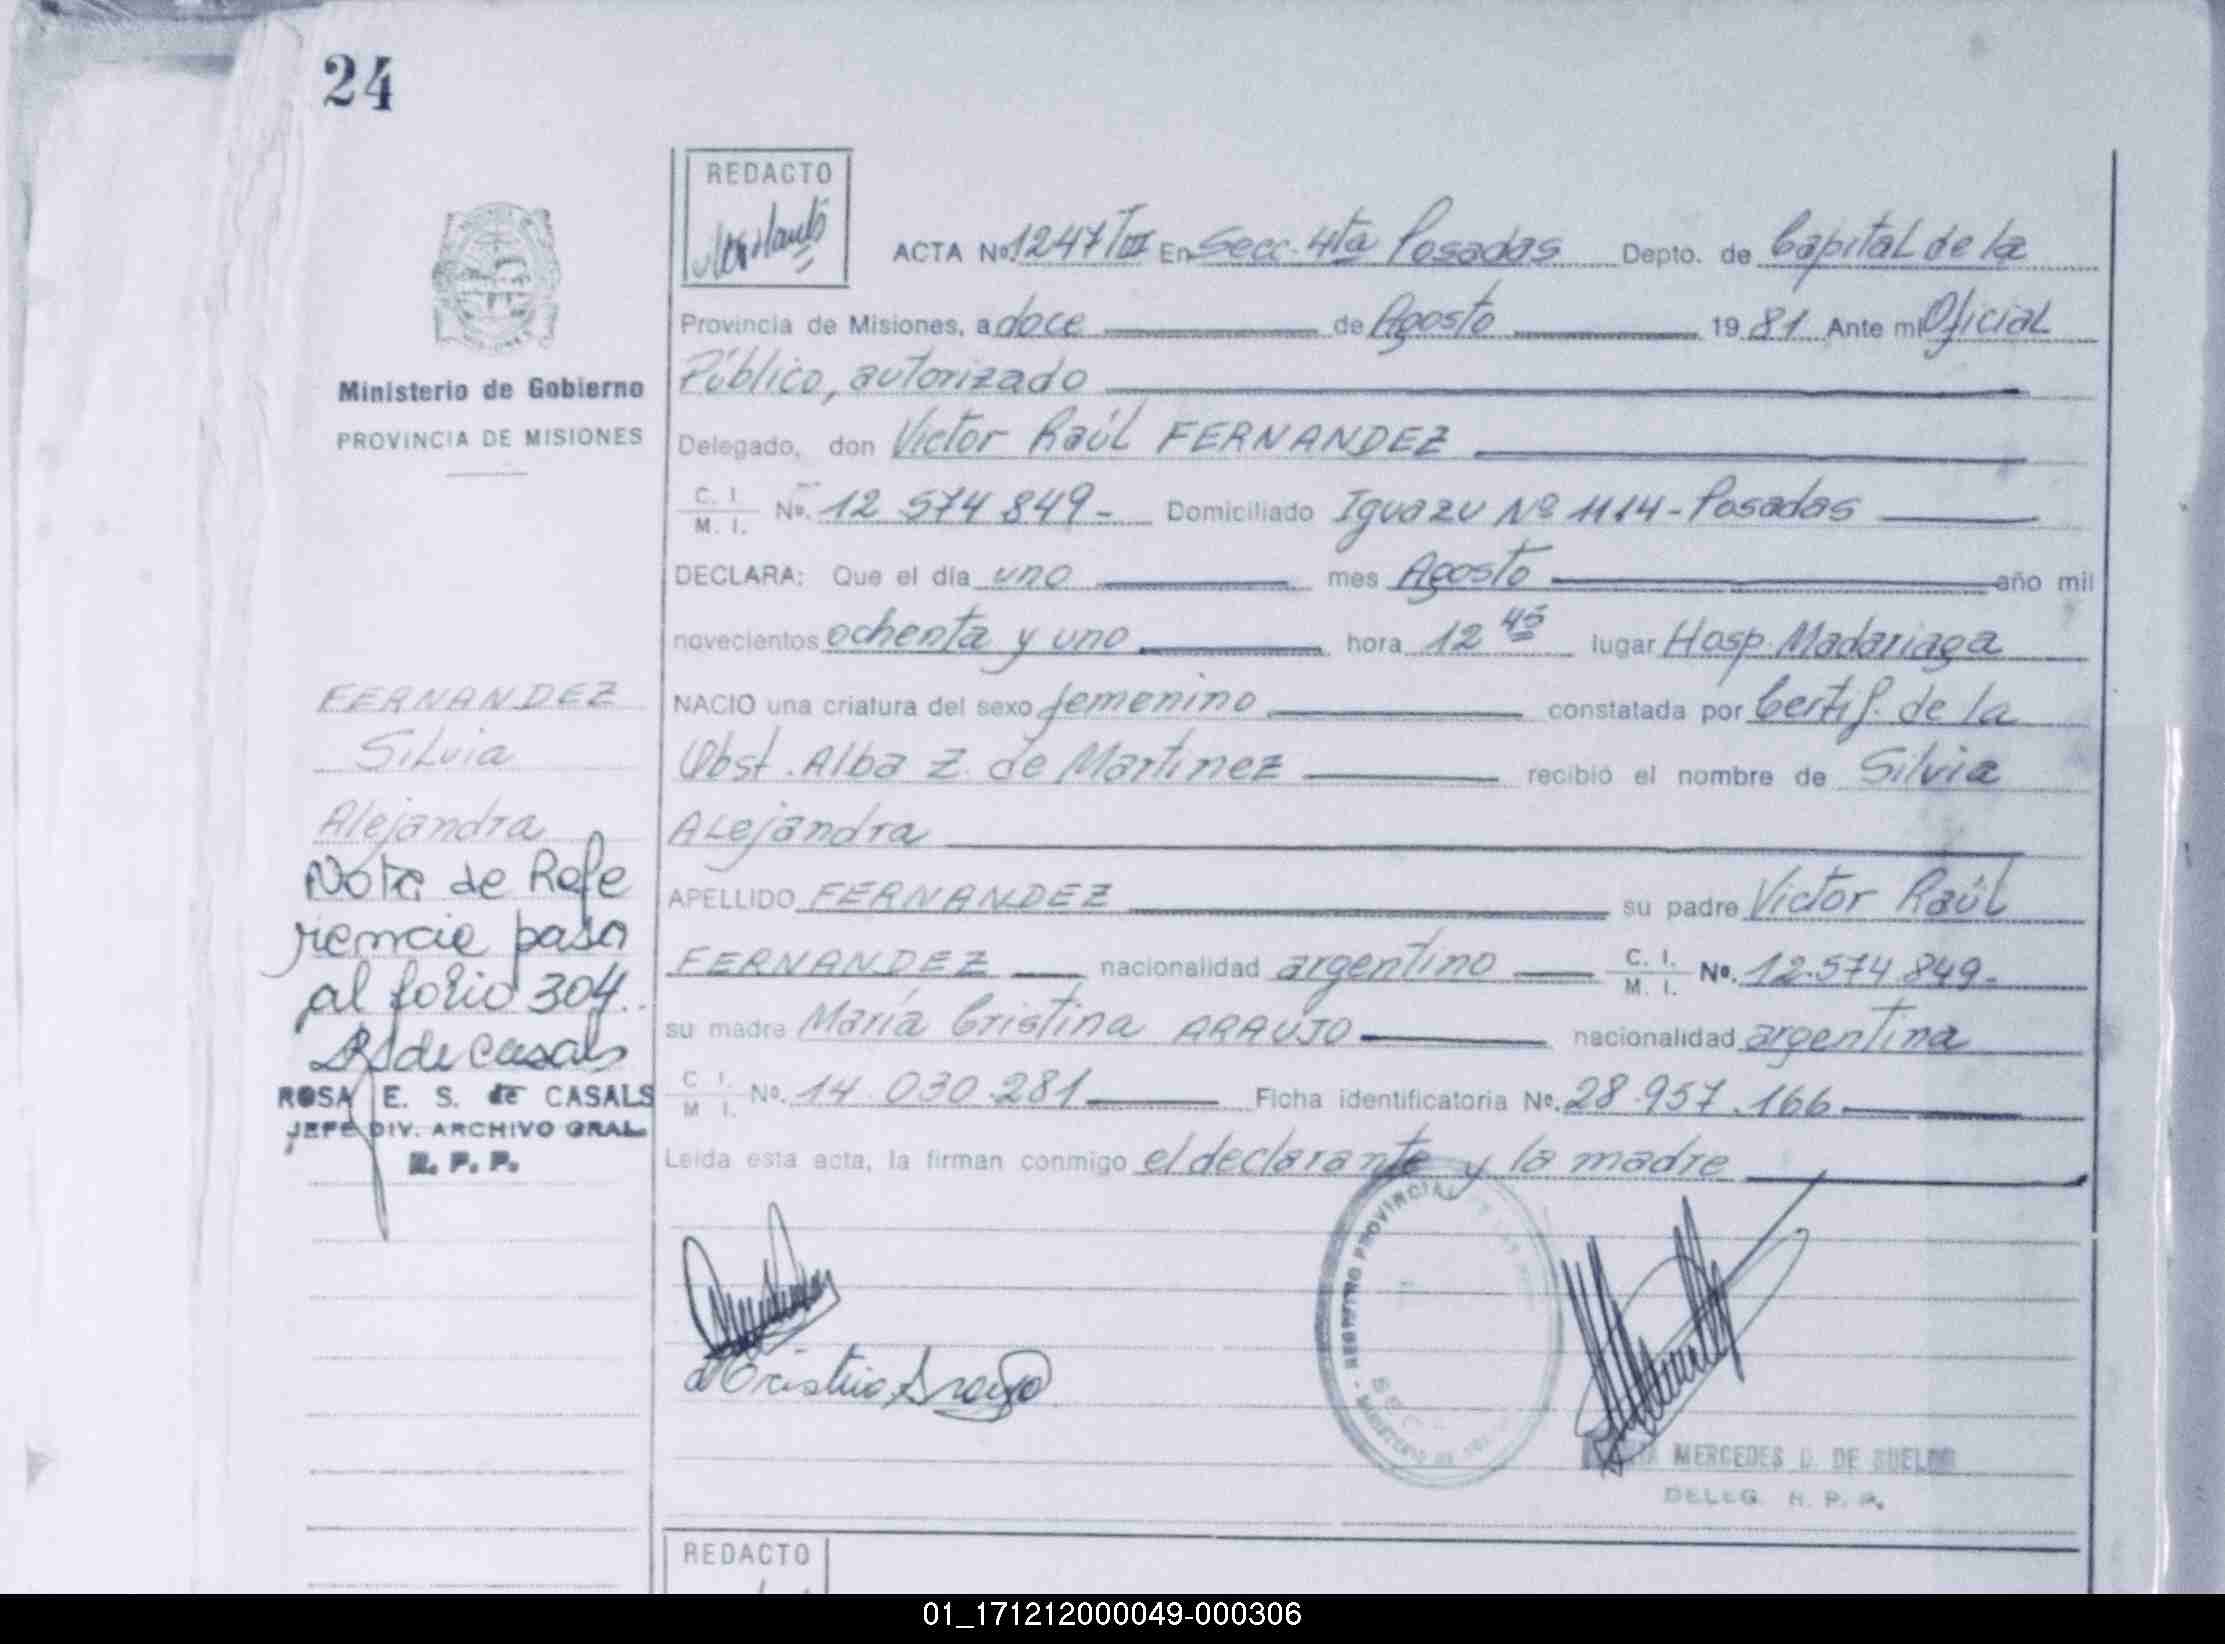 24
REDACTO
ACTA Nº 1247/III En Secc. 4ta Posadas Depto. de Capital de la
Provincia de Misiones, a doce de Agosto 1981 Ante mi Oficial
Público, autorizado
Ministerio de Gobierno
PROVINCIA DE MISIONES
Delegado, don Victor Raúl FERNANDEZ
C. I. M. I. Nº. 12 574 849- Domiciliado Iguazu Nº 1114 - Posadas
DECLARA: Que el día uno mes Agosto año mil
novecientos ochenta y uno hora 12 45 lugar Hosp. Madariaga
NACIO una criatura del sexo femenino constatada por Certif. de la
Obst. Alba Z. de Martinez recibió el nombre de Silvia
Alejandra
APELLIDO FERNANDEZ su padre Victor Raúl
FERNANDEZ nacionalidad argentino C. I. M. I. Nº. 12.574.849-
su madre María Cristina ARAUJO nacionalidad argentina
C I. M I. Nº. 14.030.281 Ficha identificatoria Nº. 28.957.166
Leída esta acta, la firman conmigo el declarante y la madre
FERNANDEZ
Silvia
Alejandra
Nota de Refe
rencie pasa
al folio 304.
RSde Casals
ROSA E. S. de CASALS
JEFE DIV. ARCHIVO GRAL.
R. P. P.
Cristina Araujo
REGISTRO PROVINCIAL
MERCEDES D. DE
DELEG. R. P. P.
REDACTO
01_171212000049-000306